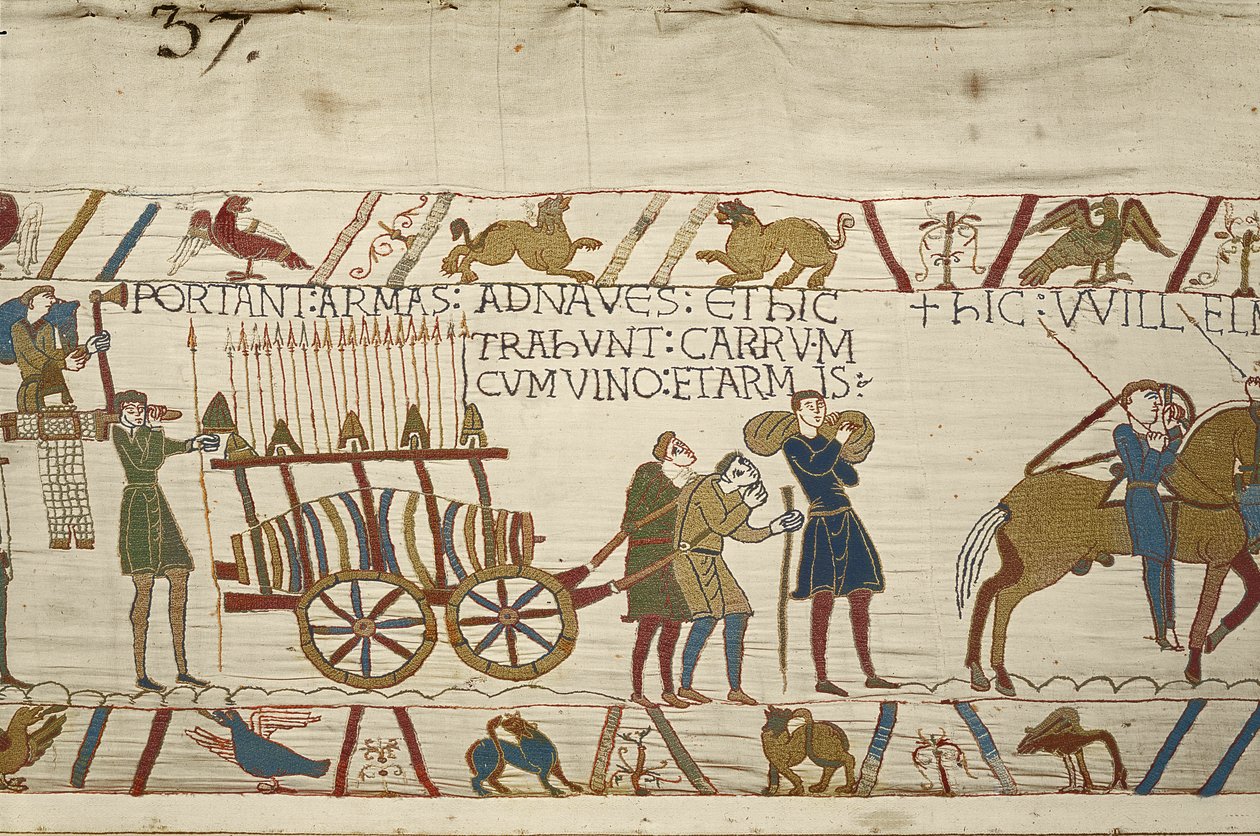 37.
PORTANT:ARMAS: ADNAVES: EThIC
TRAhVNT: CARRV·M
CVMVINO:ETARMIS:
+hIC: VVILLEL